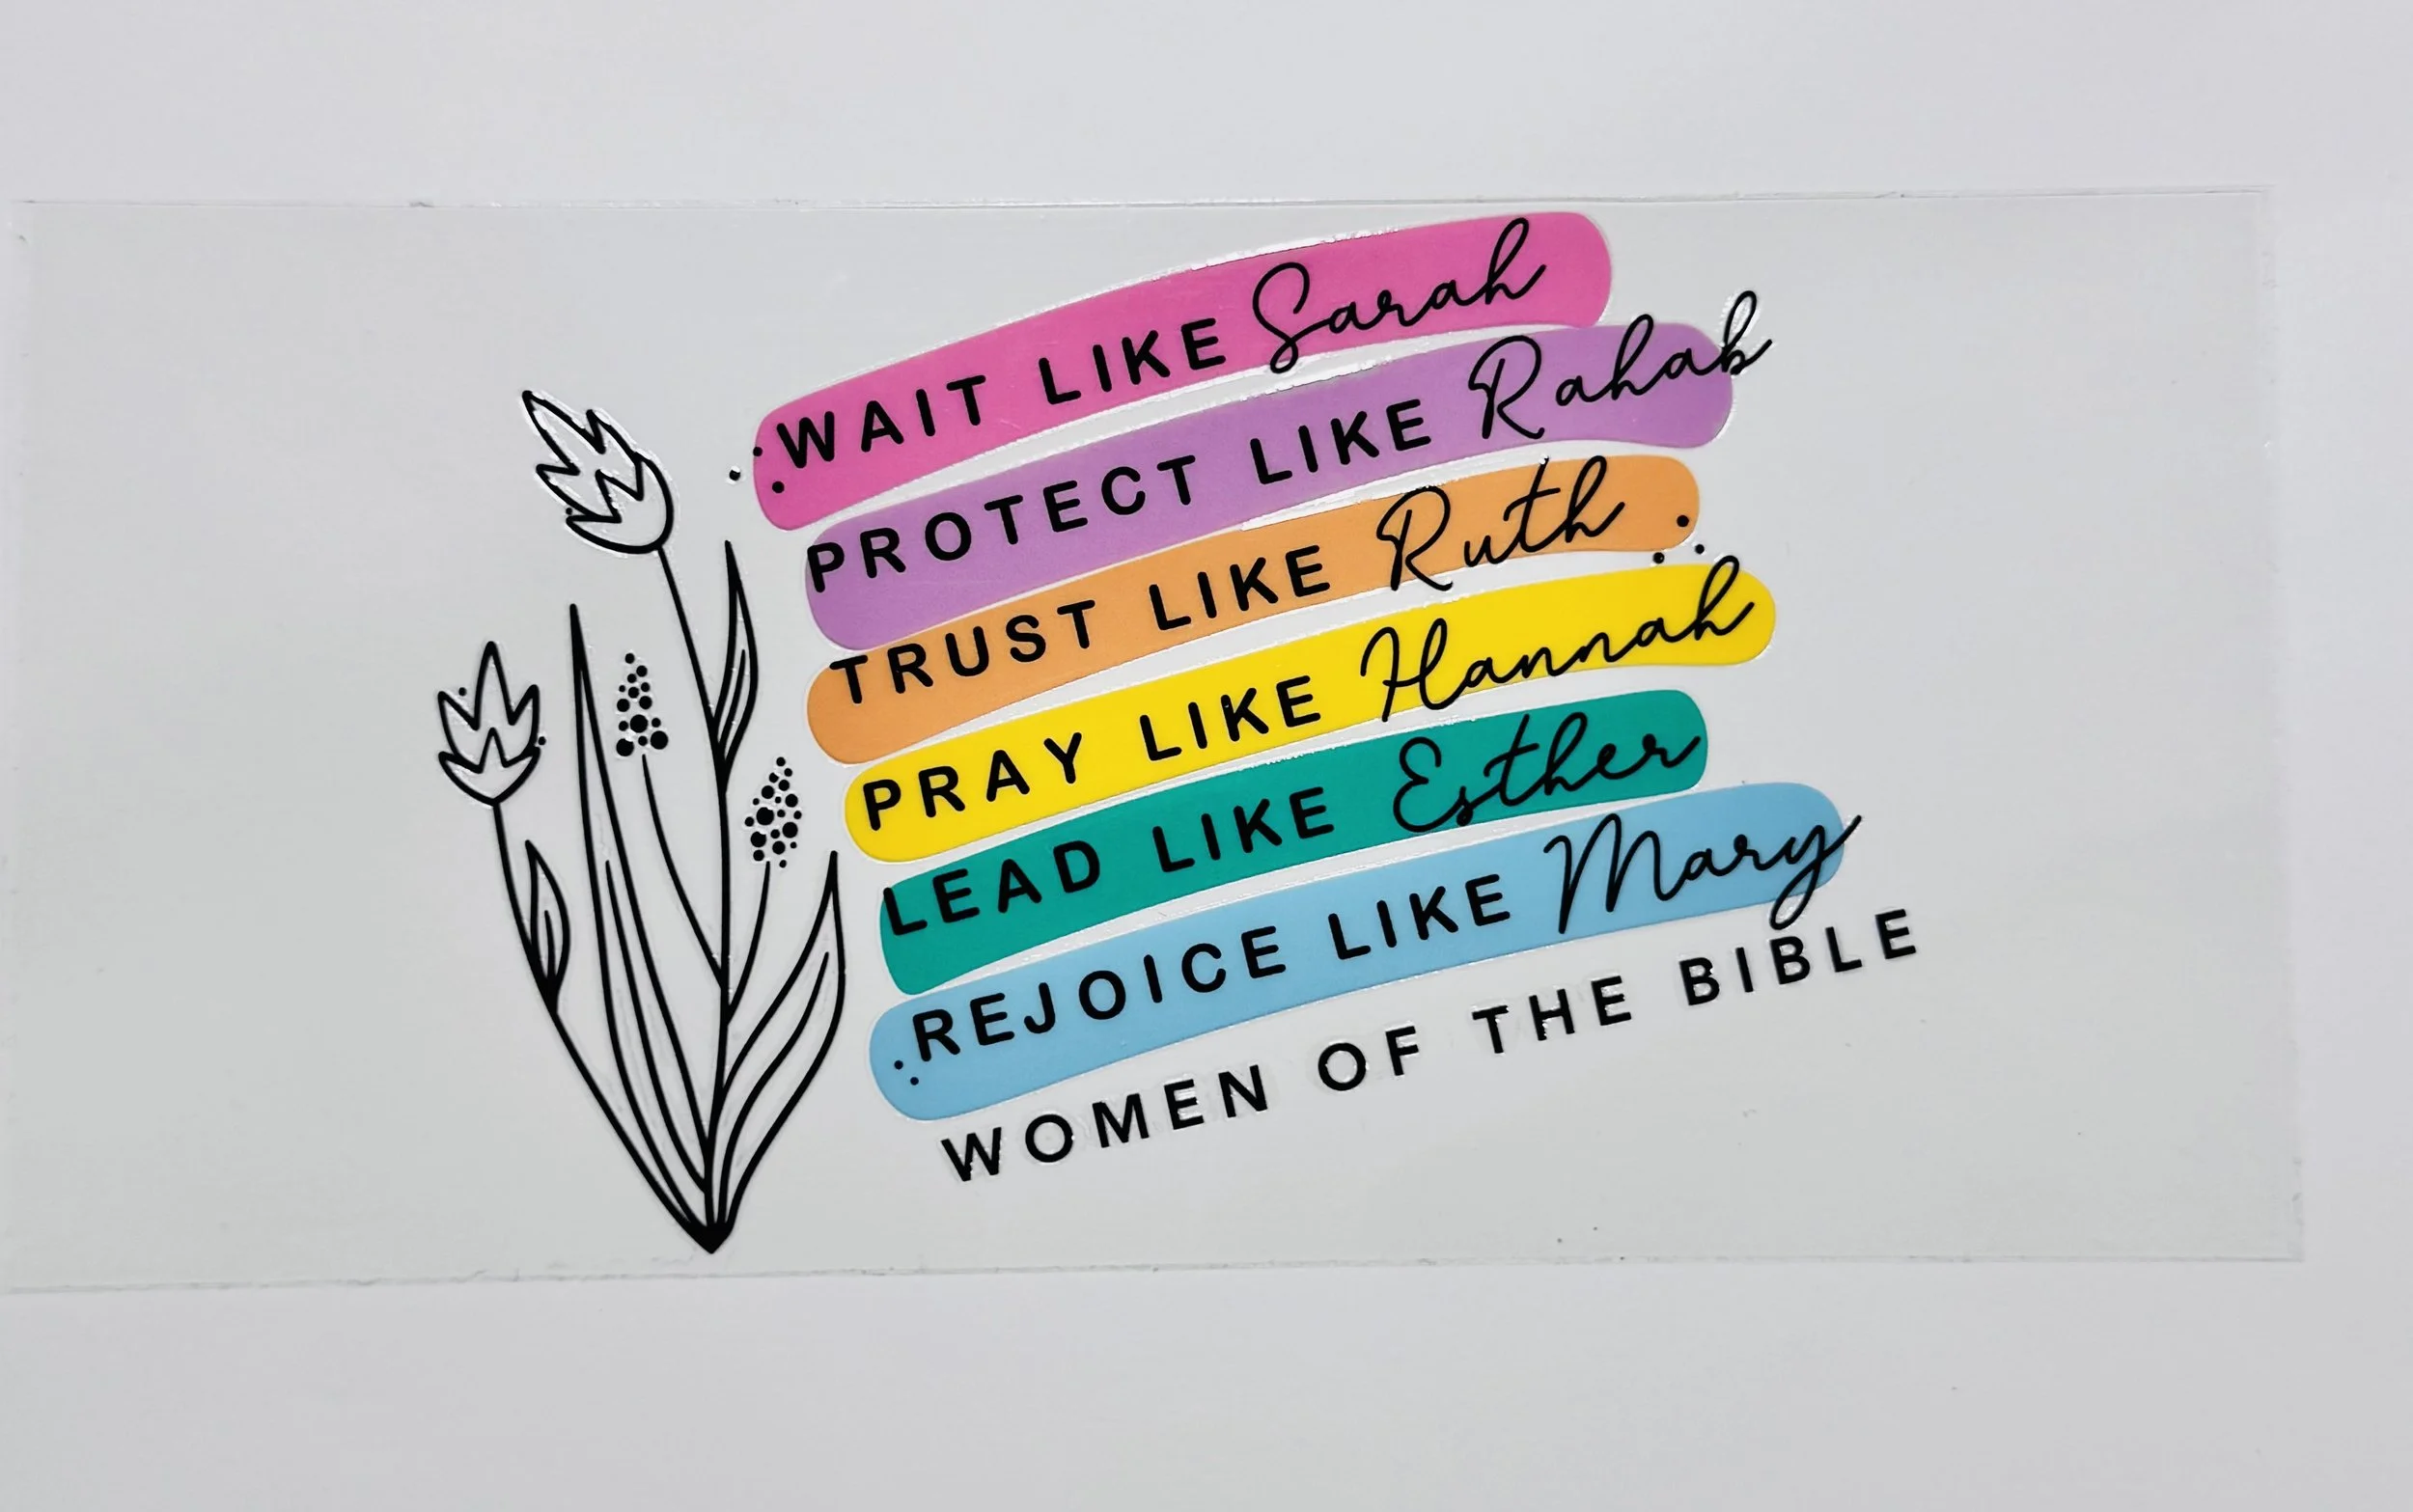 WAIT LIKE Sarah
PROTECT LIKE Rahab
TRUST LIKE Ruth
PRAY LIKE Hannah
LEAD LIKE Esther
REJOICE LIKE Mary
WOMEN OF THE BIBLE